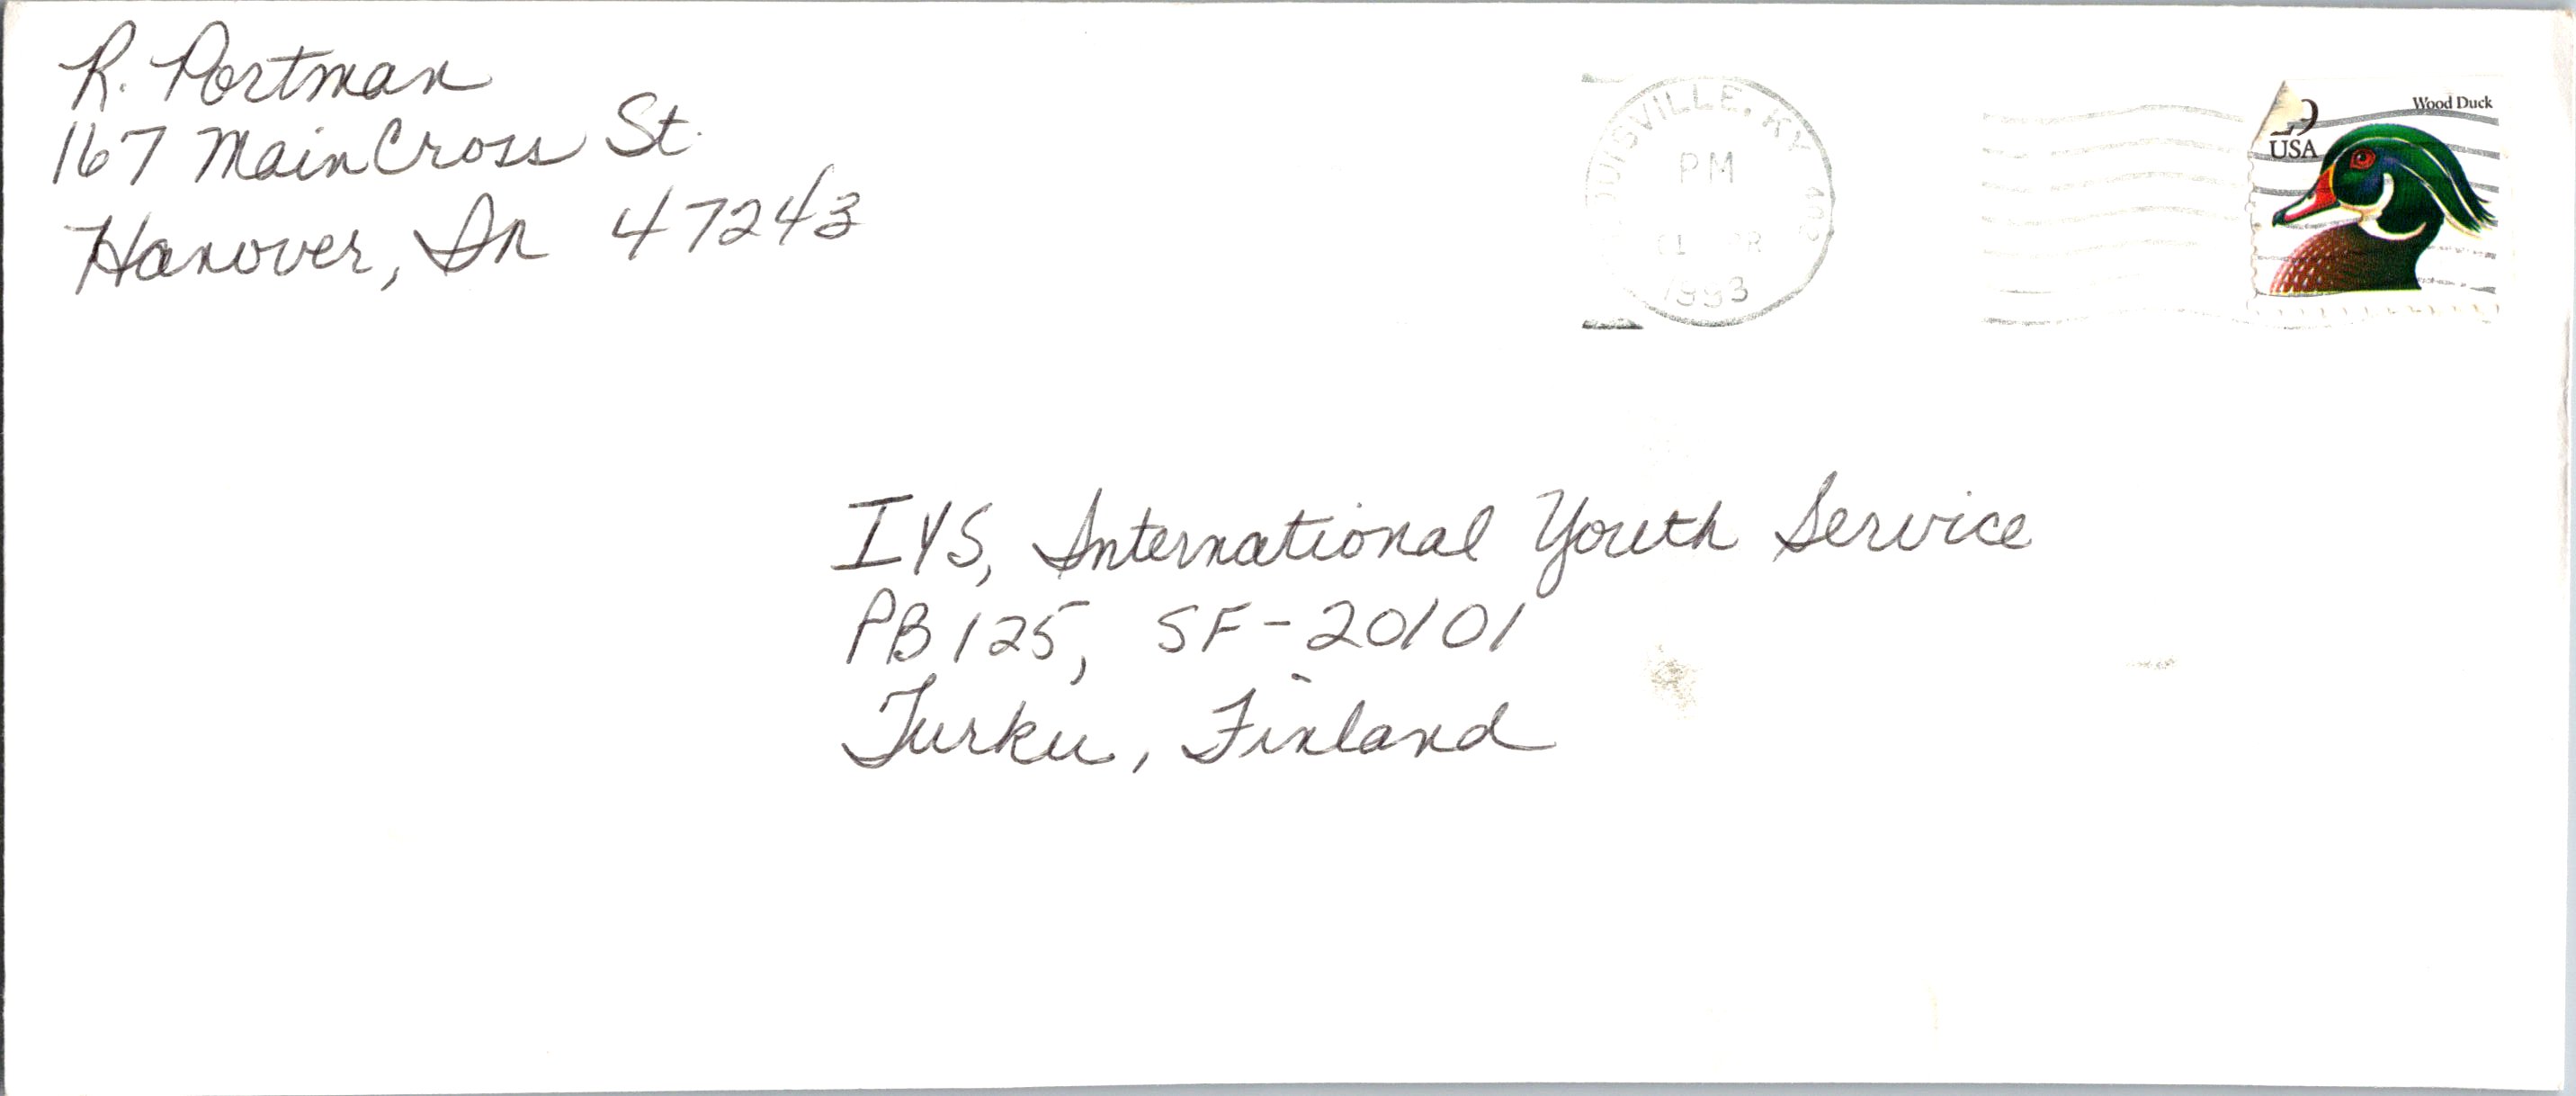 R. Portman
167 Main Cross St.
Hanover, In 47243
LOUISVILLE, KY 402
PM
1993
Wood Duck
USA
IYS, International Youth Service
PB 125, SF-20101
Turku, Finland